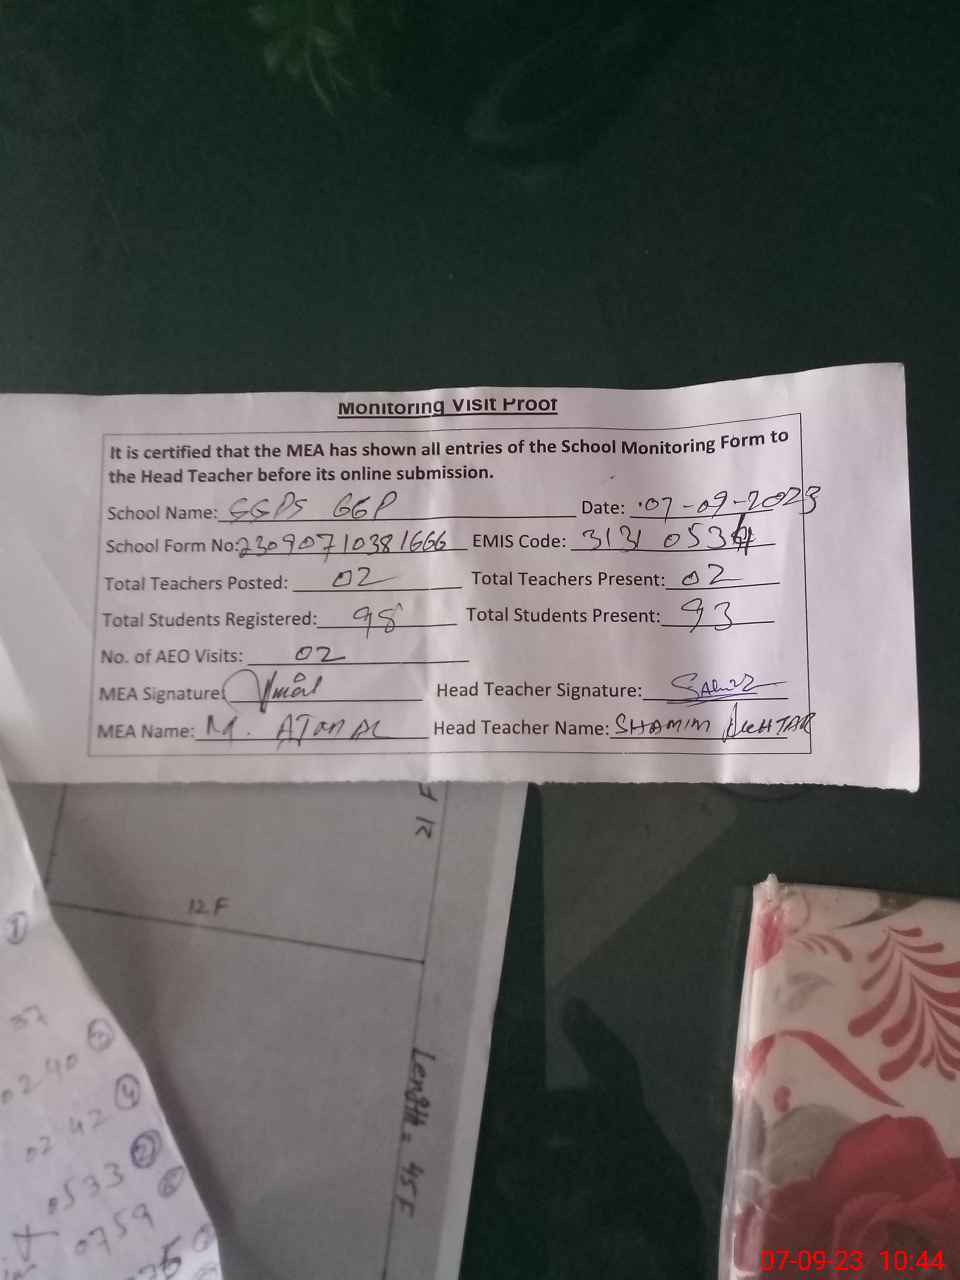 Monitoring Visit Proof
It is certified that the MEA has shown all entries of the School Monitoring Form to
the Head Teacher before its online submission.
School Name: GGPS GGP Date: 07-09-2023
School Form No: 23090710381666 EMIS Code: 3131 053
Total Teachers Posted: 02 Total Teachers Present: 02
Total Students Registered: 98 Total Students Present: 93
No. of AEO Visits: 02
MEA Signature: Head Teacher Signature:
MEA Name: M. Head Teacher Name: SHAMIM AKHTAR
12 F
Length = 45 F
1
37
0240
0242 4
0533 2
0759
07-09-23 10:44